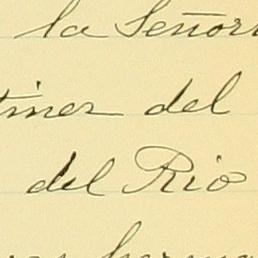 la Señori
tinez del
del Rio